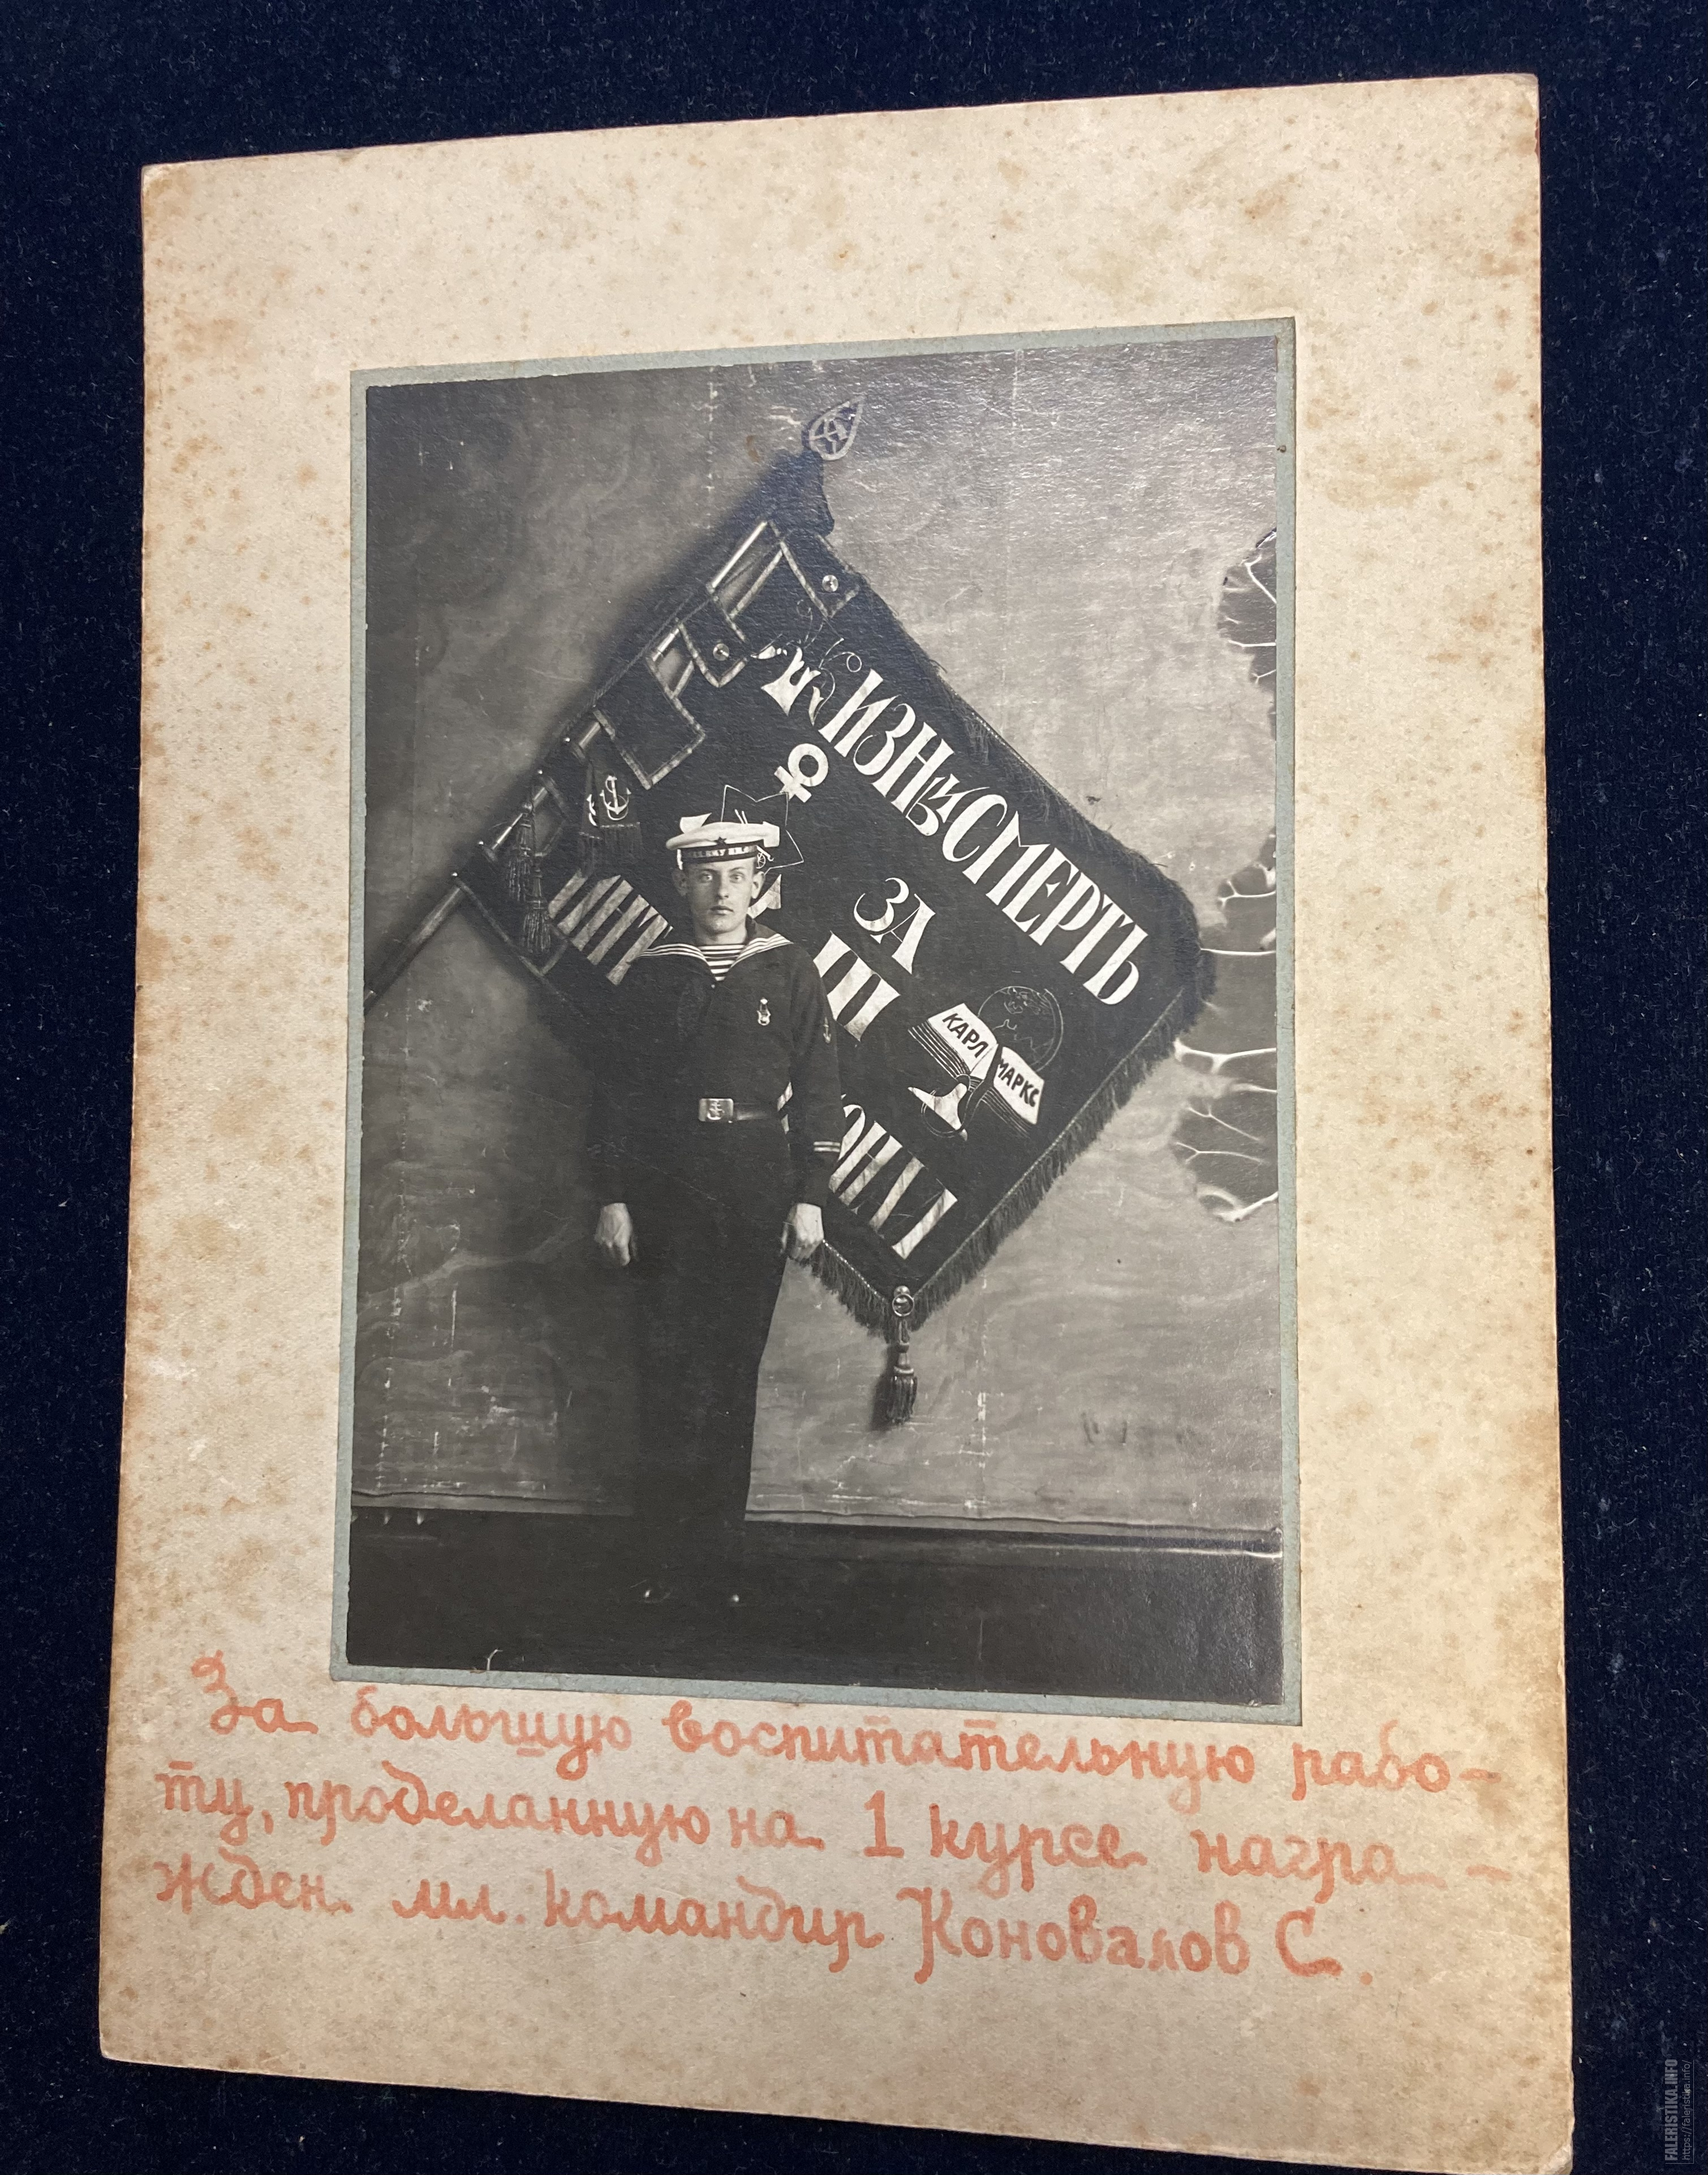 ЖИЗНЬ СМЕРТЬ
ЗА
III
КАРЛ МАРКС
За большую воспитательную рабо-
ту, проделанную на 1 курсе награ-
жден мл. командир Коновалов С.
FALERISTIKA.INFO
https://faleristika.info/